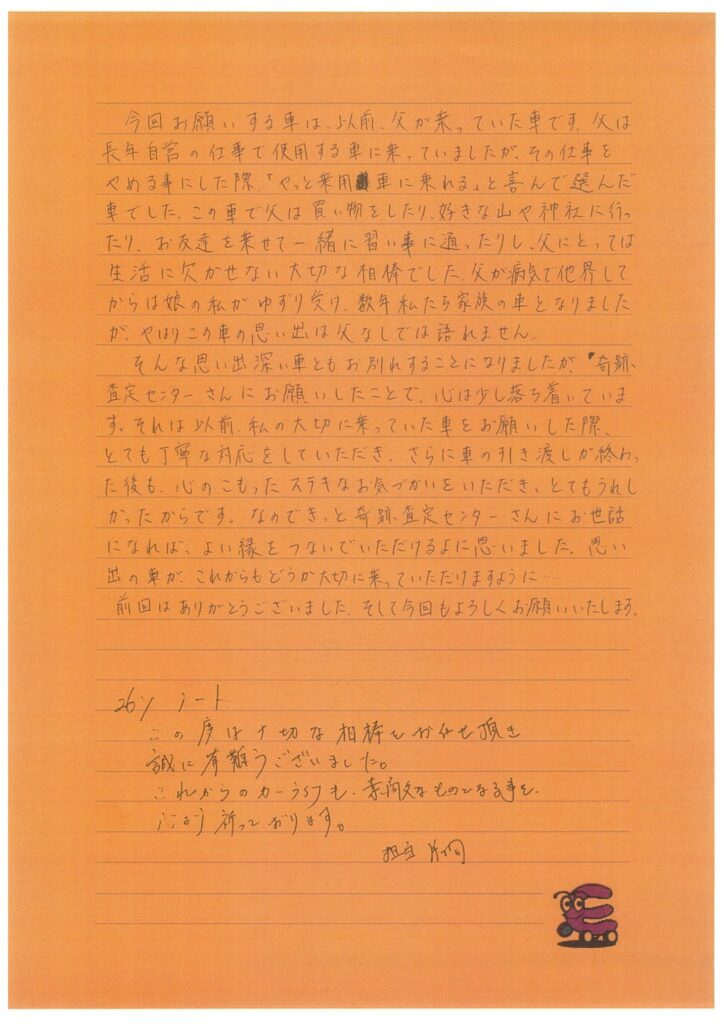 今回お願いする車は、以前、父が乗っていた車です。父は
長年自営の仕事で使用する車に乗っていましたが、その仕事を
やめる事にした際、「やっと乗用車に乗れる」と喜んで選んだ
車でした。この車で父は買い物をしたり、好きな山や神社に行っ
たり、お友達を乗せて一緒に習い事に通ったりし、父にとっては
生活に欠かせない大切な相棒でした。父が病気で他界して
からは娘の私がゆずり受け、数年私たち家族の車となりました
が、やはりこの車の思い出は父なしでは語れません。
そんな思い出深い車ともお別れすることになりましたが、奇跡、
査定センターさんにお願いしたことで、心は少し落ち着いていま
す。それは以前、私の大切に乗っていた車をお願いした際、
とても丁寧な対応をしていただき、さらに車の引き渡しが終わっ
た後も、心のこもったステキなお気づかいをいただき、とてもうれし
かったからです。なのできっと奇跡、査定センターさんにお世話
になれば、よい縁をつないでいただけるよに思いました。思い
出の車が、これからもどうか大切に乗っていただけますように…
前回はありがとうございました。そして今回もよろしくお願いいたします。
ノート
この度は大切な相棒をお任せ頂き
誠に有難うございました。
これからのカーライフも、素敵なものとなる事を、
心より祈っております。
担当